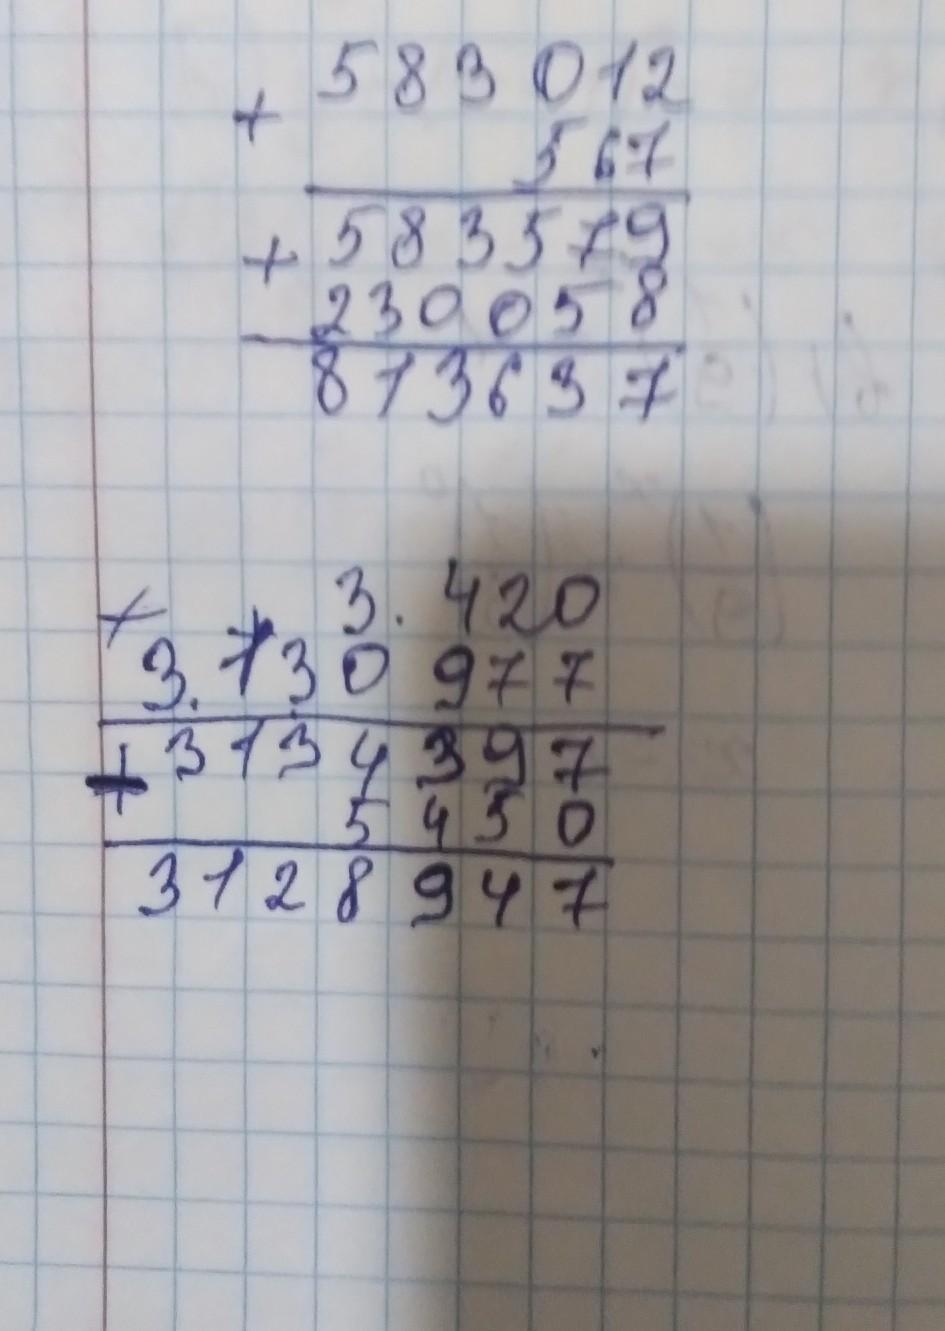 583 012
+
567
583579
+
230058
813637
3.420
+
3.130 977
3134397
+
5450
3128947